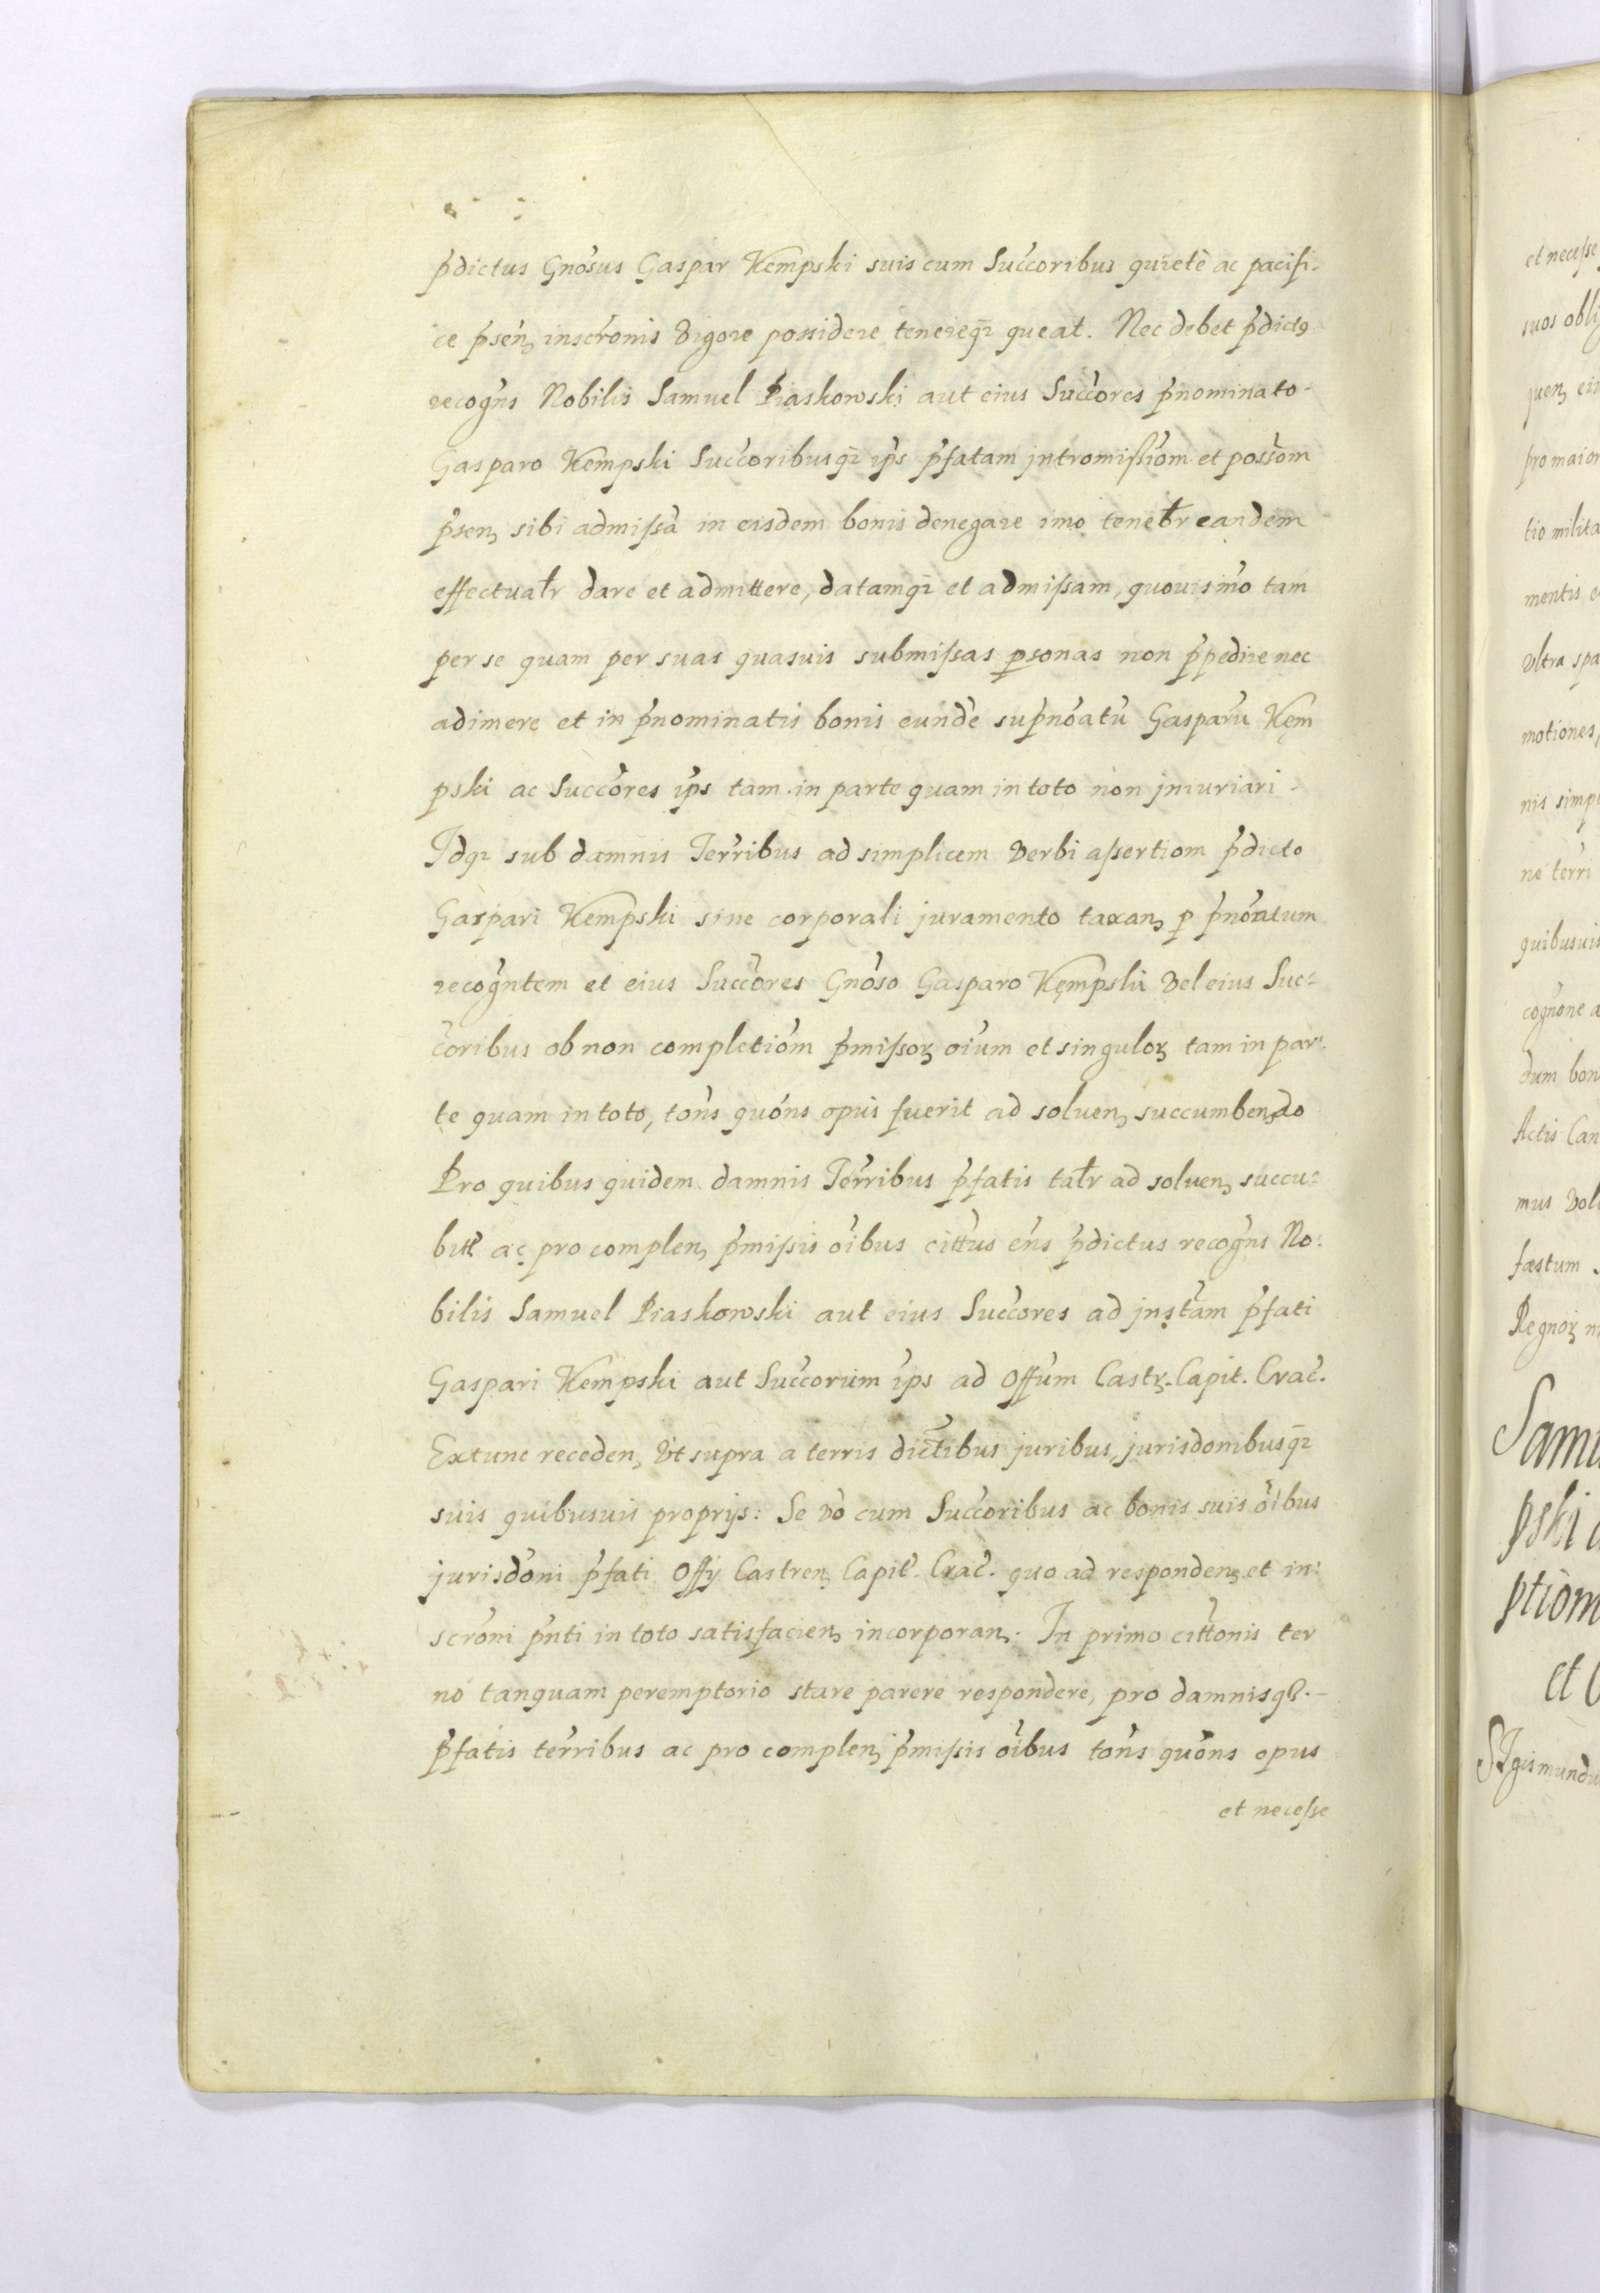 p̃dictus Gnõsus Gaspar Kempski suis cum Succ̃oribus quietè ac pacifi-
ce p̃sen̄ȝ inscrõnis vigore possidere tenereq₃ queat. Nec debet p̃dictꝰ
recogñs Nobilis Samuel Piaskowski aut eius Succ̃ores p̃nominato
Gasparo Kempski Succ̃oribusq₃ ip̃s p̃fatam jntromiſsiõm et possõm
p̃senȝ sibi admiſsã in eisdem bonis denegare imo tenebr̃ eandem
effectualr̃ dare et admittere, datamq₃ et admiſsam, quouismõ tam
per se quam per suas quasuis submiſsas ꝑsonas non p̃pedire nec
adimere et in p̃nominatis bonis eundẽ sup̃nõatũ Gasparũ Kęm
pski ac Succ̃ores ip̃s tam in parte quam in toto non jniuriari
Jdq₃ sub damnis Terr̃ibus ad simplicem verbi aſsertiom p̃dicto
Gaspari Kempski sine corporali juramento taxanȝ ꝑ p̃nõatum
recogñtem et eius Succ̃ores Gnõso Gasparo Kęmpski vel eius Suc-
c̃oribus ob non completiõm p̃miſsorȝ oĩum et singulorȝ tam in par-
te quam in toto, tõns quõns opus fuerit ad soluenȝ succumbendo
Pro quibus quidem damnis Terr̃ibus p̃fatis talr̃ ad soluenȝ succu-
bitł ac pro complenȝ p̃miſsis oĩbus citt̃us eñs p̃dictus recogñs No-
bilis Samuel Piaskowski aut eius Succ̃ores ad jnst̃am p̃fati
Gaspari Kempski aut Succ̃orum ip̃s ad Off̃um Castrȝ. Capit. Crac̃.
Extunc recedenȝ vt supra a terris dict̃ibus juribus, jurisdõnibusq₃
suis quibusuis proprijs: Se võ cum Succ̃oribus ac bonis suis oĩbus
jurisdõni p̃fati Offy Castrenȝ Capit̃. Crac̃. quo ad respondenȝ et in-
scrõni p̃nti in toto satisfacienȝ incorporanȝ. In primo citt̃onis ter
nõ tanquam peremptorio stare parere respondere, pro damnisqȝ.
p̃fatis terr̃ibus ac pro complenȝ p̃miſsis oĩbus tõns quõns opus
et neceſse
et neceſse
suos obli
quenȝ ei
pro maior
tio milita
mentis e
vltra spa
motiones,
nis simpl
ne terri
quibusuis
cogñone a
dum bon
Actis Can
mus vol
fæstum
Regnorȝ
Samu
pski
ptiõm
et
SIgismundu